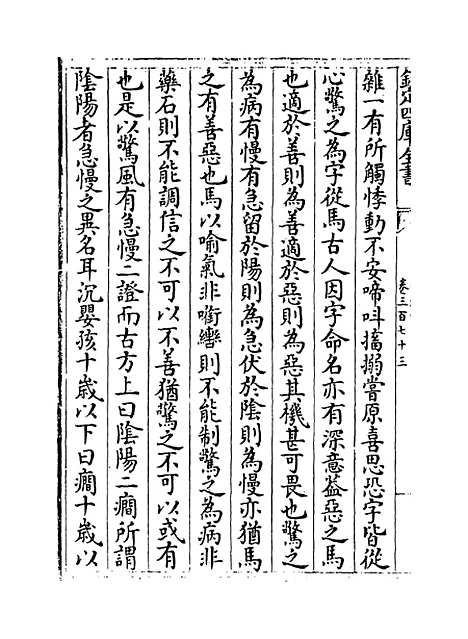 欽定四庫全書
卷三百七十三
雜一有所觸悸動不安啼呌搐搦嘗原喜思恐字皆從
心驚之為字從馬古人因字命名亦有深意葢惡之馬
也適於善則為善適於惡則為惡其機甚可畏也驚之
為病有慢有急留於陽則為急伏於陰則為慢亦猶馬
之有善惡也馬以喻氣非銜轡則不能制驚之為病非
藥石則不能調信之不可以不善猶驚之不可以或有
也是以驚風有急慢二證而古方上曰陰陽二癇所謂
陰陽者急慢之異名耳沉嬰孩十歲以下曰癇十歲以